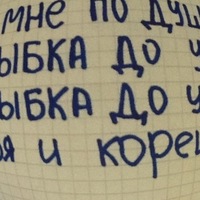 МНЕ ПО ДУШ
ЫБКА ДО У
ЫБКА ДО У
Я И КОРЕ